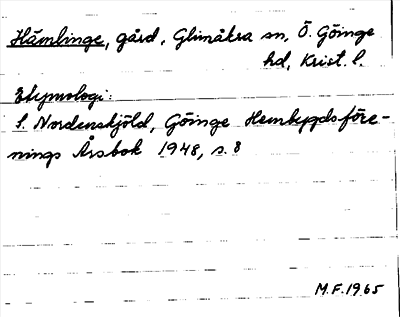 Hämlinge, gård, Glimåkra sn, Ö. Göinge
hd, Krist. l.
Etymologi:
S. Nordenskjöld, Göinge Hembygdsföre-
nings Årsbok 1948, s. 8
M.F. 1965